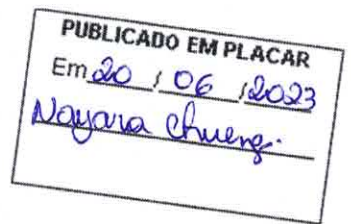 PUBLICADO EM PLACAR
Em 20 / 06 / 2023
Nayara